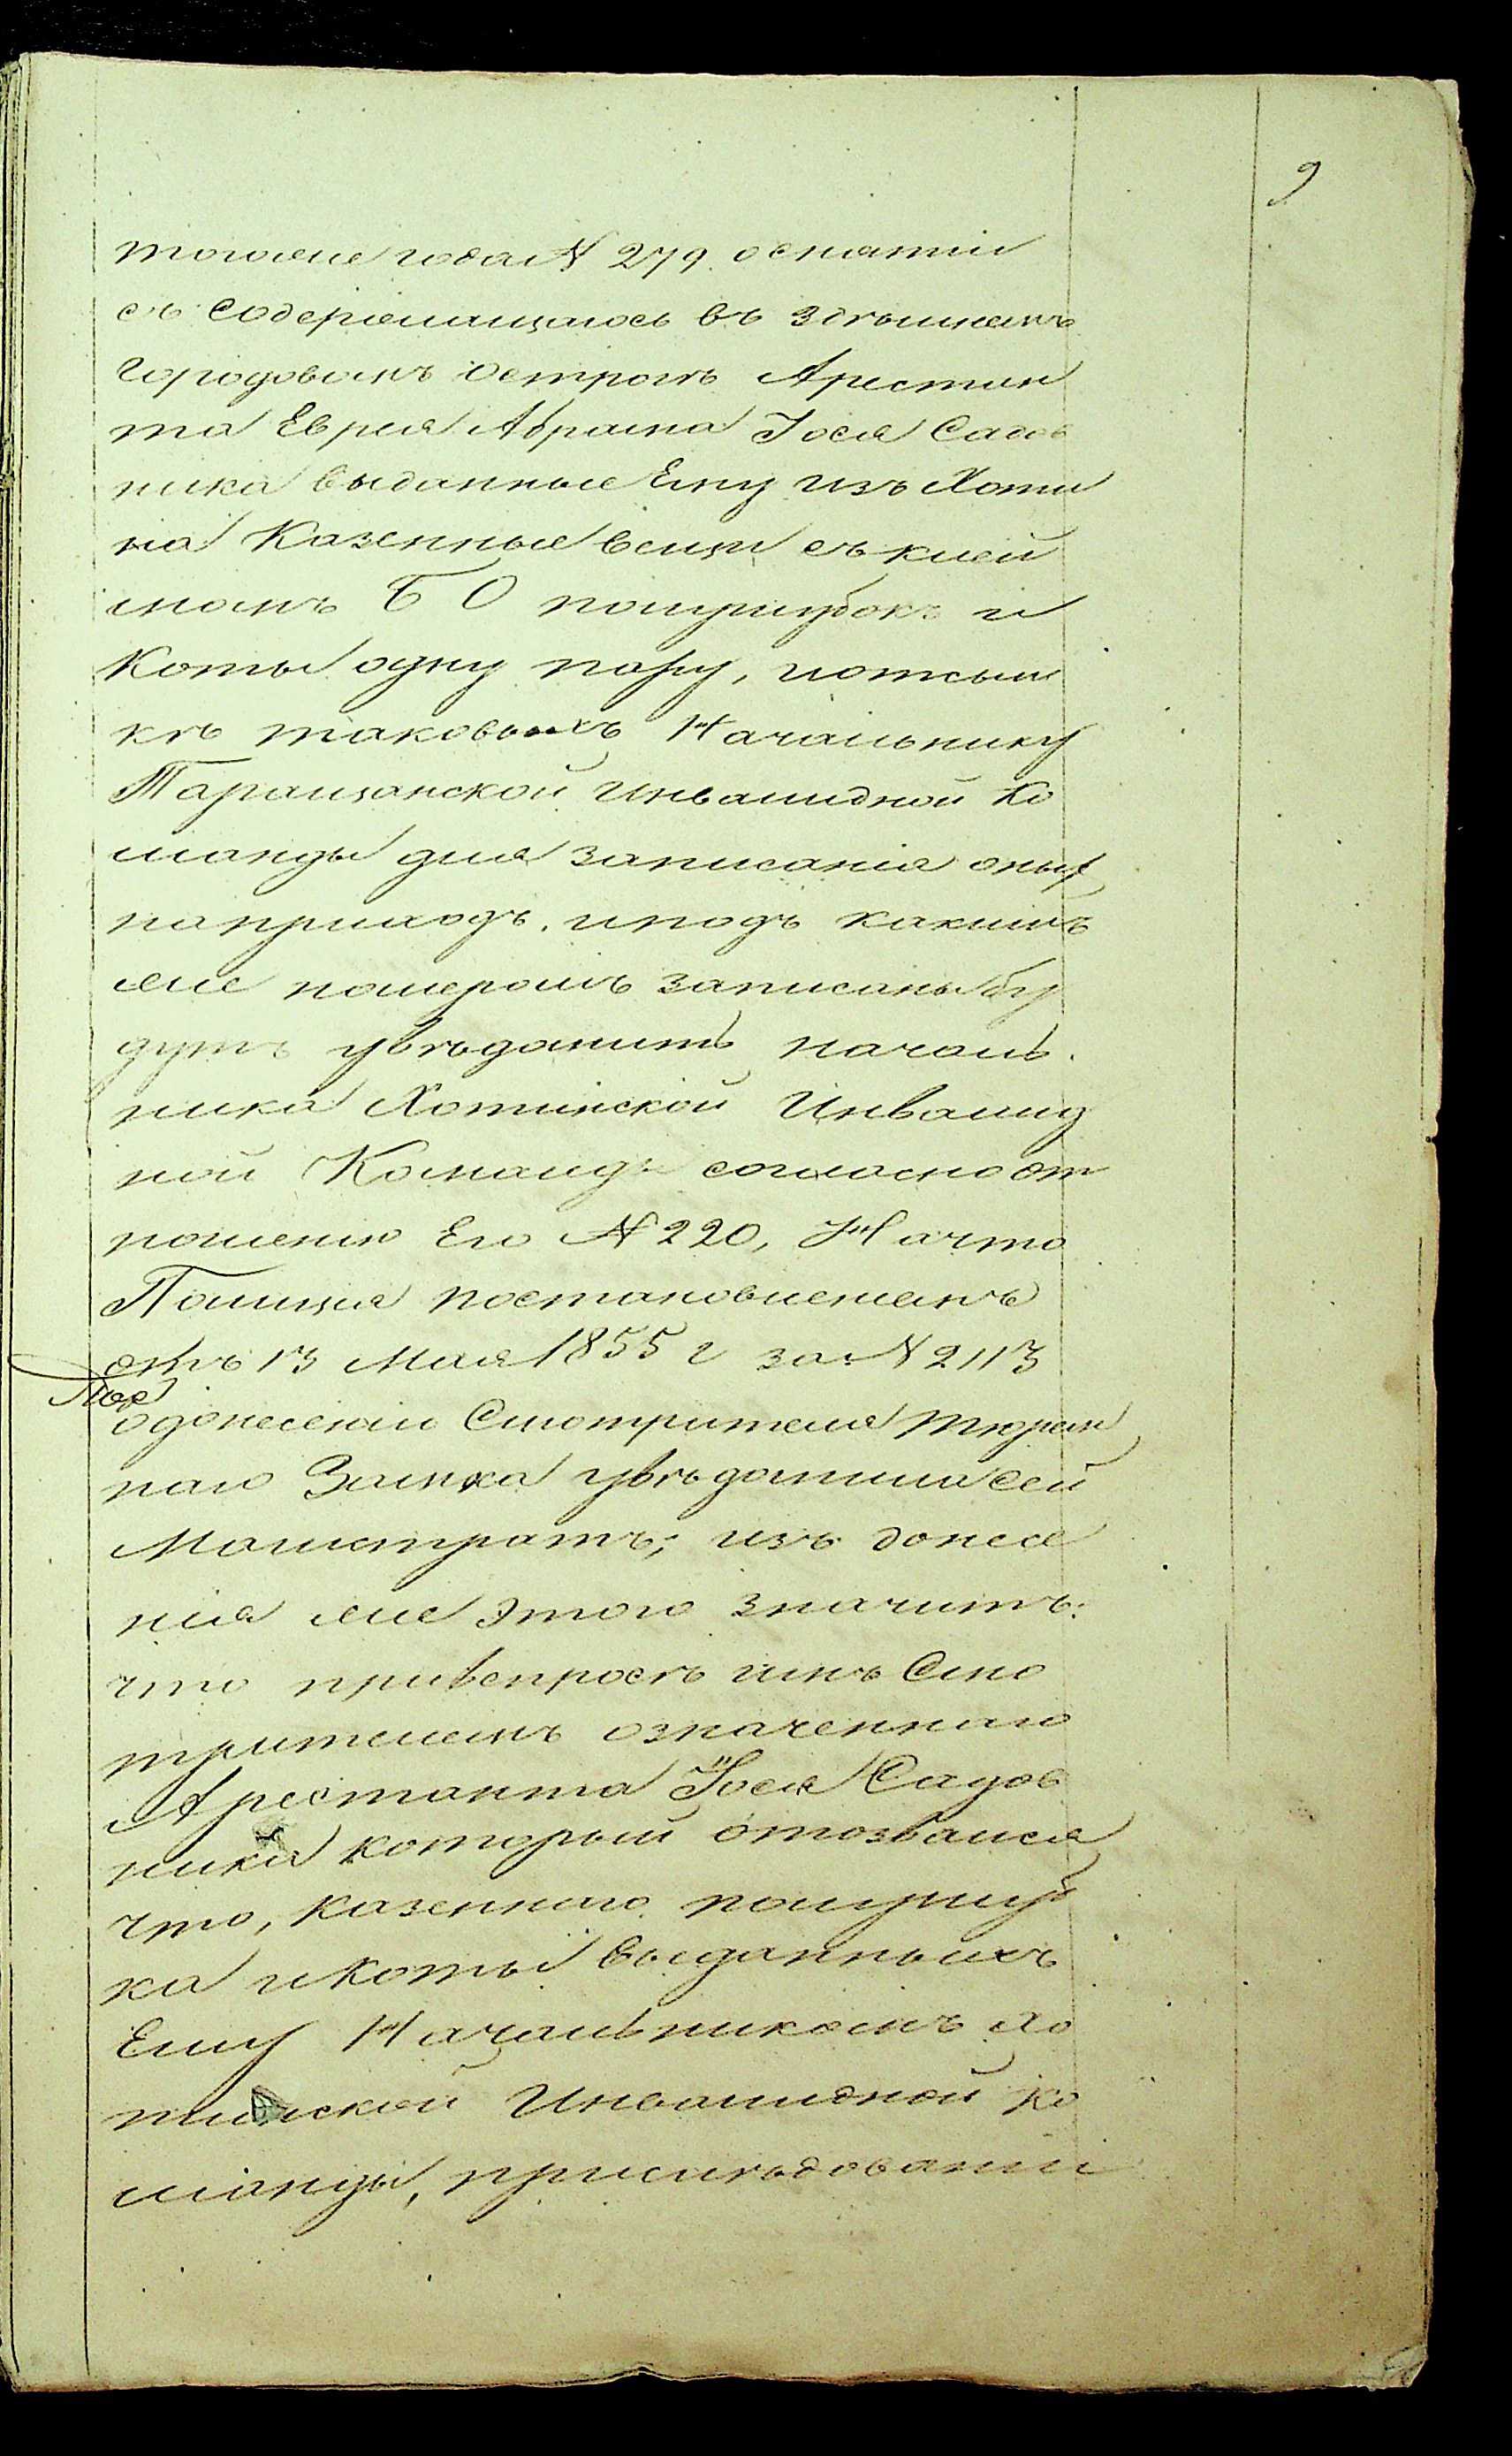 9
тогоже года N 279. оснятіи
съ содержащагось въ здѣшнемъ
городовомъ острогѣ Арестан
та Еврея Абрама Іося Садов
ника выданные Ему изъ Хоти
на Казенные вещи съ клей
момъ Б О полушубокъ и
Коты одну пару, иотсыл
кѣ таковыхъ Начальнику
Таращанской Инвалидной Ко
манды для записанія оныхъ
наприходъ. иподъ какимъ
же номеромъ записаны бу
дутъ увѣдомить началь.
ника Хотинской Инвалид
ной Команды согласно от
ношенію Его N 220, Начто
Полиція постановленіемъ
отъ 13 Мая 1855 г за N 2113
одонесеніи Смотрителя Тюрем
наго Замка увѣдомила сей
Магистратъ; изъ донесе
нія же этого значитъ:
что привспросѣ имъ Смо
трителемъ означеннаго
Арестанта Іося Садов
ника который отозвался
что, казеннаго полушуб
ка икоты выданныхъ
Ему Начальникомъ Хо
тинской Инвалидной Ко
манды, прислѣдованіи